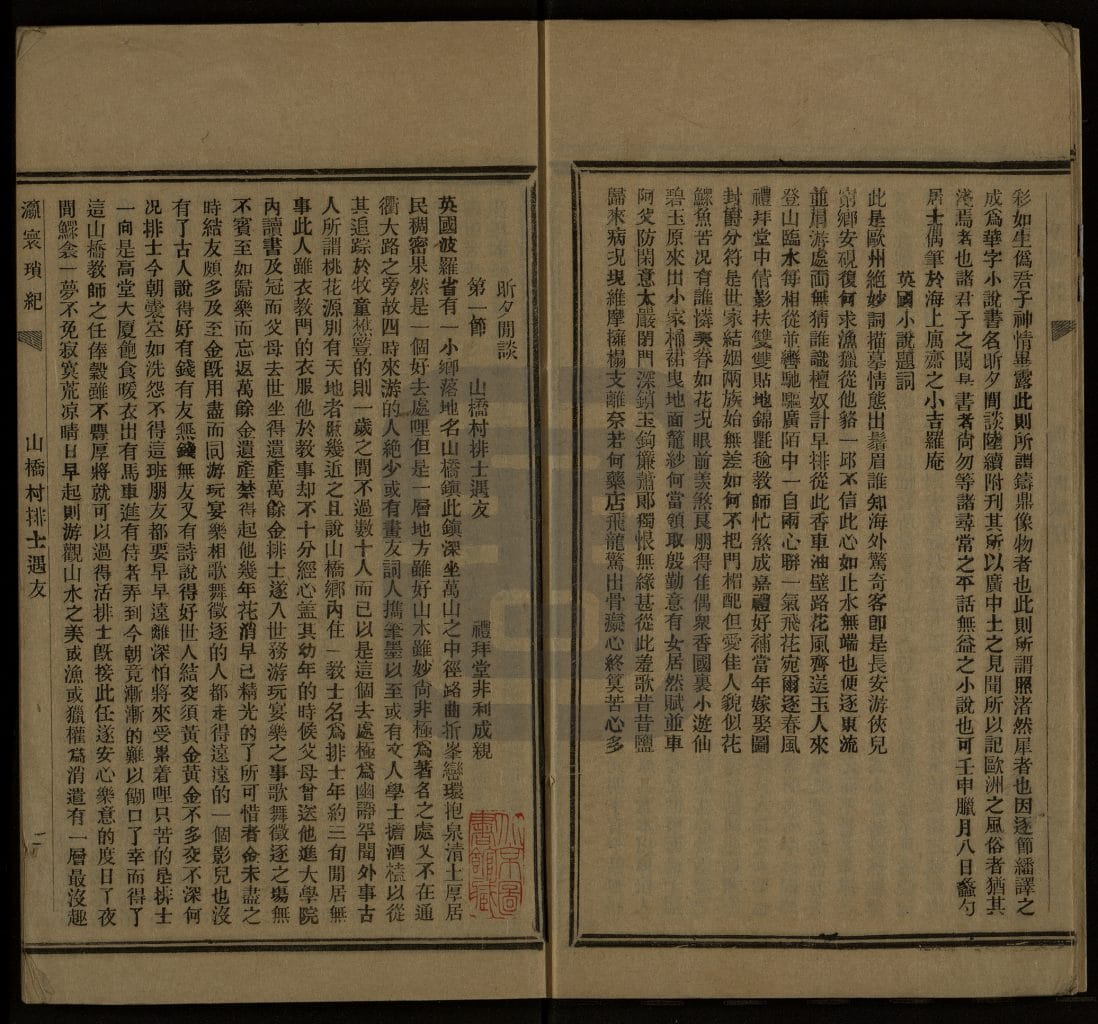 彩如生僞君子神情畢露此則所謂鑄鼎像物者也此則所謂照渚然犀者也因逐節繙譯之
成爲華字小說書名昕夕閒談陸續附刊其所以廣中土之見聞所以記歐洲之風俗者猶其
淺焉者也諸君子之閱是書者尙勿等諸尋常之平話無益之小說也可壬申臘月八日蠡勺
居士偶筆於海上寓齋之小吉羅庵
英國小說題詞
此是歐州絕妙詞描摹情態出鬚眉誰知海外驚奇客卽是長安游俠兒
窮鄉安硯復何求漁獵從他貉一邱不信此心如止水無端也便逐東流
並肩游處面無猜誰識檀奴計早排從此香車油壁路花風齊送玉人來
登山臨水每相從並轡馳驅廣陌中一自兩心聯一氣飛花宛爾逐春風
禮拜堂中倩影扶雙雙貼地錦氍毹教師忙煞成嘉禮好補當年嫁娶圖
封爵分符是世家結姻兩族始無差如何不把門楣配但愛佳人貌似花
鰥魚苦况有誰憐美眷如花况眼前羡煞良朋得佳偶衆香國裏小遊仙
碧玉原來出小家桶裙曳地面籠紗何當領取殷勤意有女居然賦並車
阿父防閑意太嚴閉門深鎖玉鉤廉蕭郞獨恨無緣甚從此羞歌昔昔鹽
歸來病况現維摩擁榻支離奈若何藥店飛龍驚出骨癡心終莫苦心多
昕夕閒談
第一節 山橋村排士遇友 禮拜堂非利成親
英國波羅省有一小鄉落地名山橋鎭此鎭深坐萬山之中徑路曲折峯巒環抱泉清土厚居
民稠密果然是一個好去處哩但是一層地方雖好山水雖妙尙非極爲著名之處又不在通
衢大路之旁故四時來游的人絕少或有畫友詞人攜筆墨以至或有文人學士擔酒榼以從
其追踪於牧童樵豎的則一歲之間不過數十人而已以是這個去處極爲幽靜罕聞外事古
人所謂桃花源別有天地者厥幾近之且說山橋鄉內住一教士名爲排士年約三旬閒居無
事此人雖衣教門的衣服他於教事却不十分經心蓋其幼年的時候父母曾送他進大學院
內讀書及冠而父母去世坐得遺產萬餘金排士遂入世務游玩宴樂之事歌舞徵逐之塲無
不賓至如歸樂而忘返萬餘金遺產禁得起他幾年花消早已精光的了所可惜者金未盡之
時結友頗多及至金旣用盡而同游玩宴樂相歌舞徵逐的人都走得遠遠的一個影兒也沒
有了古人說得好有錢有友無錢無友又有詩說得好世人結交須黃金黃金不多交不深何
况排士今朝囊空如洗怨不得這班朋友都要早早遠離深怕將來受累着哩只苦的是排士
一向是高堂大厦飽食暖衣出有馬車進有侍者弄到今朝竟漸漸的難以餬口了幸而得了
這山橋教師之任俸穀雖不豐厚將就可以過得活排士旣接此任遂安心樂意的度日丫夜
間鰥衾一夢不免寂寞荒凉晴日早起則游觀山水之美或漁或獵權爲消遣有一層最沒趣
瀛寰瑣紀 山橋村排士遇友 二